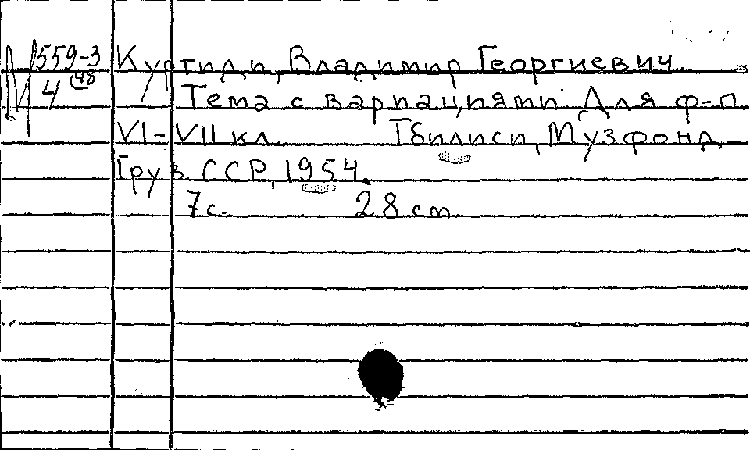 М 559-3 Куртиди, Владимир Георгиевич.
4 (48) Тема с вариациями. Для ф-п.
VI-VII кл. Тбилиси, Музфонд
Груз. ССР, 1954.
7 с. 28 cm